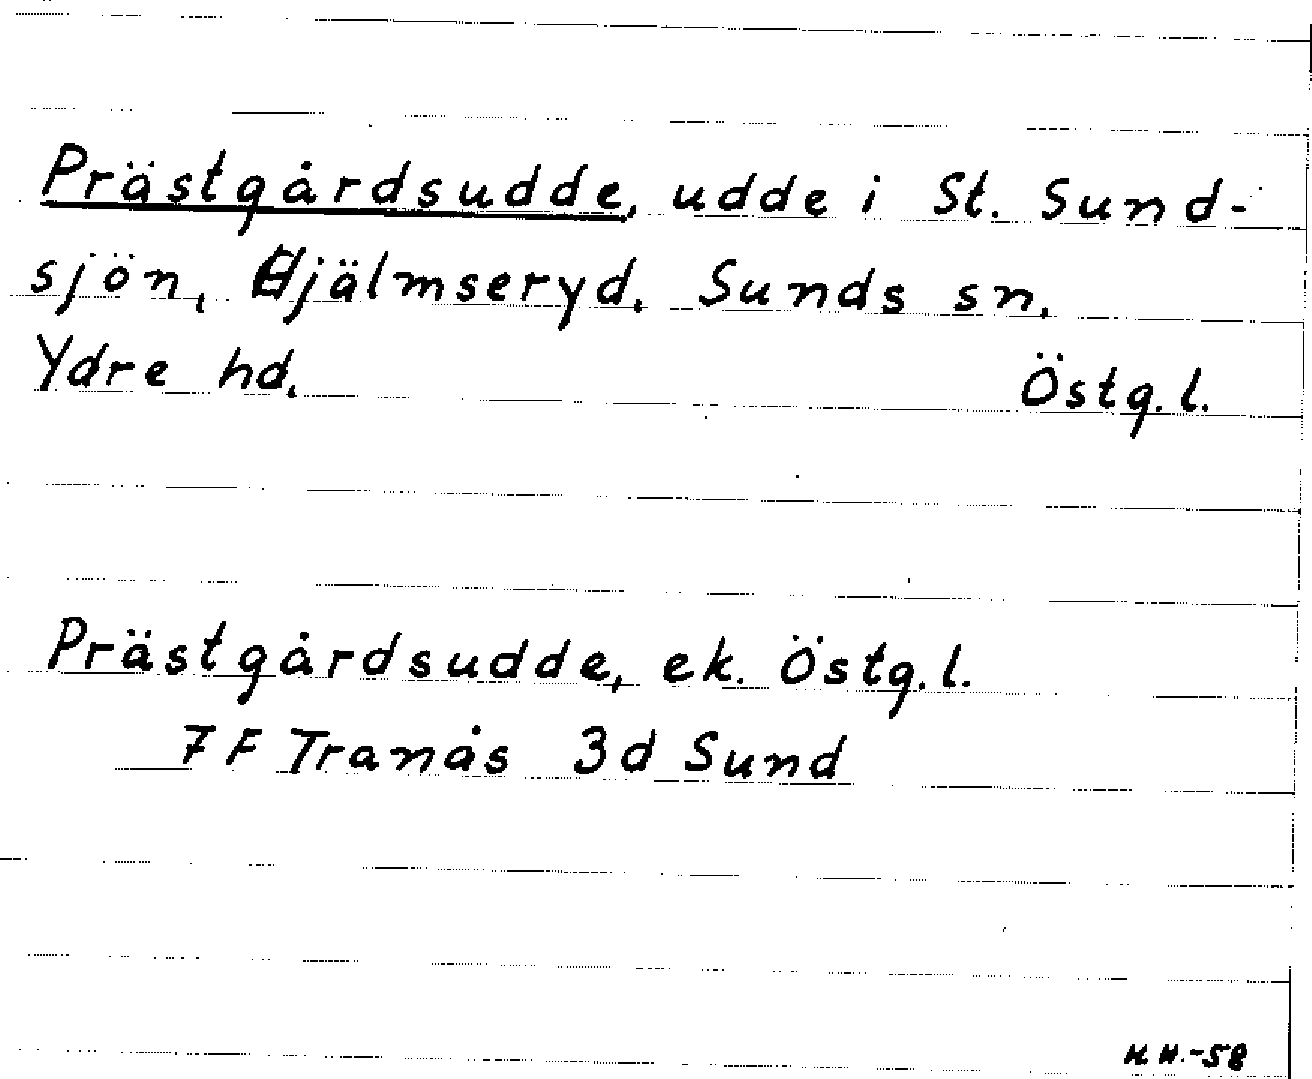 Prästgårdsudde, udde i St. Sund-
sjön, Hjälmseryd. Sunds sn.
Ydre hd. Östg.l.
Prästgårdsudde, ek. Östg.l.
7 F Tranås 3d Sund
H.H.-58